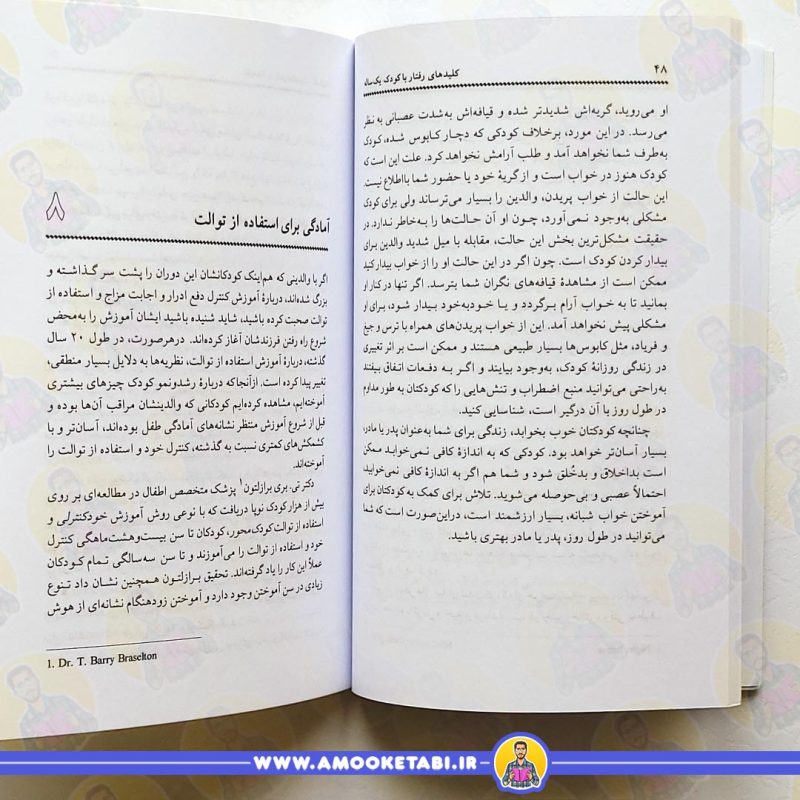 ۴۸
کلیدهای رفتار با کودک یک‌ساله
او می‌روید، گریه‌اش شدیدتر شده و قیافه‌اش به‌شدت عصبانی به نظر
می‌رسد. در این مورد، برخلاف کودکی که دچار کابوس شده، کودک
به‌طرف شما نخواهد آمد و طلب آرامش نخواهد کرد. علت این است که
کودک هنوز در خواب است و از گریهٔ خود یا حضور شما بااطلاع نیست.
این حالت از خواب پریدن، والدین را بسیار می‌ترساند ولی برای کودک
مشکلی به‌وجود نمی‌آورد، چون او آن حالت‌ها را به‌خاطر ندارد. در
حقیقت مشکل‌ترین بخش این حالت، مقابله با میل شدید والدین برای
بیدار کردن کودک است. چون اگر در این حالت او را از خواب بیدار کنید
ممکن است از مشاهدهٔ قیافه‌های نگران شما بترسد. اگر تنها در کنار او
بمانید تا به خواب آرام برگردد و یا خودبه‌خود بیدار شود، برای او
مشکلی پیش نخواهد آمد. این از خواب پریدن‌های همراه با ترس و جیغ
و فریاد، مثل کابوس‌ها بسیار طبیعی هستند و ممکن است بر اثر تغییری
در زندگی روزانهٔ کودک، به‌وجود بیایند و اگر به دفعات اتفاق بیفتند
به‌راحتی می‌توانید منبع اضطراب و تنش‌هایی را که کودکتان به طور مداوم
در طول روز با آن درگیر است، شناسایی کنید.
چنانچه کودکتان خوب بخوابد، زندگی برای شما به‌عنوان پدر یا مادر،
بسیار آسان‌تر خواهد بود. کودکی که به اندازهٔ کافی نمی‌خوابد ممکن
است بداخلاق و بدخُلق شود و شما هم اگر به اندازهٔ کافی نمی‌خوابید،
احتمالاً عصبی و بی‌حوصله می‌شوید. تلاش برای کمک به کودکتان برای
آموختن خواب شبانه، بسیار ارزشمند است، دراین‌صورت است که شما
می‌توانید در طول روز، پدر یا مادر بهتری باشید.
۸
آمادگی برای استفاده از توالت
اگر با والدینی که هم‌اینک کودکانشان این دوران را پشت سر گذاشته و
بزرگ شده‌اند، دربارهٔ آموزش کنترل دفع ادرار و اجابت مزاج و استفاده از
توالت صحبت کرده باشید، شاید شنیده باشید ایشان آموزش را به‌محض
شروع راه رفتن فرزندشان آغاز کرده‌اند. درهرصورت، در طول ۲۰ سال
گذشته، دربارهٔ آموزش استفاده از توالت، نظریه‌ها به دلایل بسیار منطقی،
تغییر پیدا کرده است. ازآنجاکه دربارهٔ رشدونمو کودک چیزهای بیشتری
آموخته‌ایم، مشاهده کرده‌ایم کودکانی که والدینشان مراقب آن‌ها بوده و
قبل از شروع آموزش منتظر نشانه‌های آمادگی طفل بوده‌اند، آسان‌تر و با
کشمکش‌های کمتری نسبت به گذشته، کنترل خود و استفاده از توالت را
آموخته‌اند.
دکتر تی. بری برازلتون۱ پزشک متخصص اطفال در مطالعه‌ای بر روی
بیش از هزار کودک نوپا دریافت که با نوعی روش آموزش خودکنترلی و
استفاده از توالت کودک‌محور، کودکان تا سن بیست‌وهشت‌ماهگی کنترل
خود و استفاده از توالت را می‌آموزند و تا سن سه‌سالگی تمام کودکان
عملاً این کار را یاد گرفته‌اند. تحقیق برازلتون همچنین نشان داد تنوع
زیادی در سن آموختن وجود دارد و آموختن زودهنگام نشانه‌ای از هوش
1. Dr. T. Barry Braselton
WWW.AMOOKETABI.IR